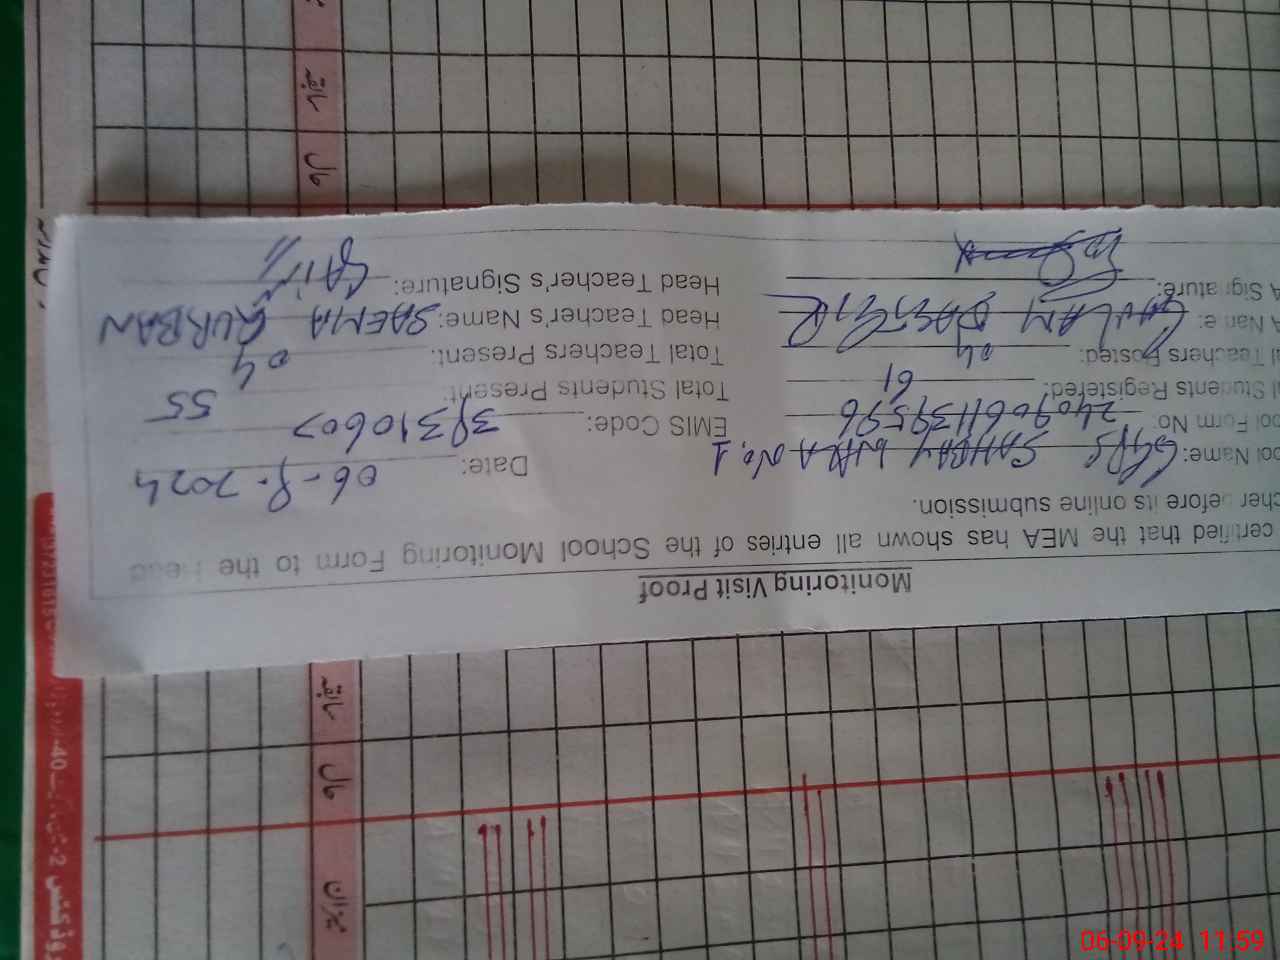 Monitoring Visit Proof
certified that the MEA has shown all entries of the School Monitoring Form to the Head
cher before its online submission.
ool Name: GGPS SAHBAY WALA No, 1 Date: 06-9-2024
ool Form No: EMIS Code: 38310607
Students Registered: 61 Total Students Present: 55
al Teachers Posted: 04 Total Teachers Present: 04
A Name: GHULAM DASTGIR Head Teacher's Name: SAEMA QURBAN
A Signature: Head Teacher's Signature:
سابقہ
حال
سابقہ
حال
میزان
06-09-24 11:59